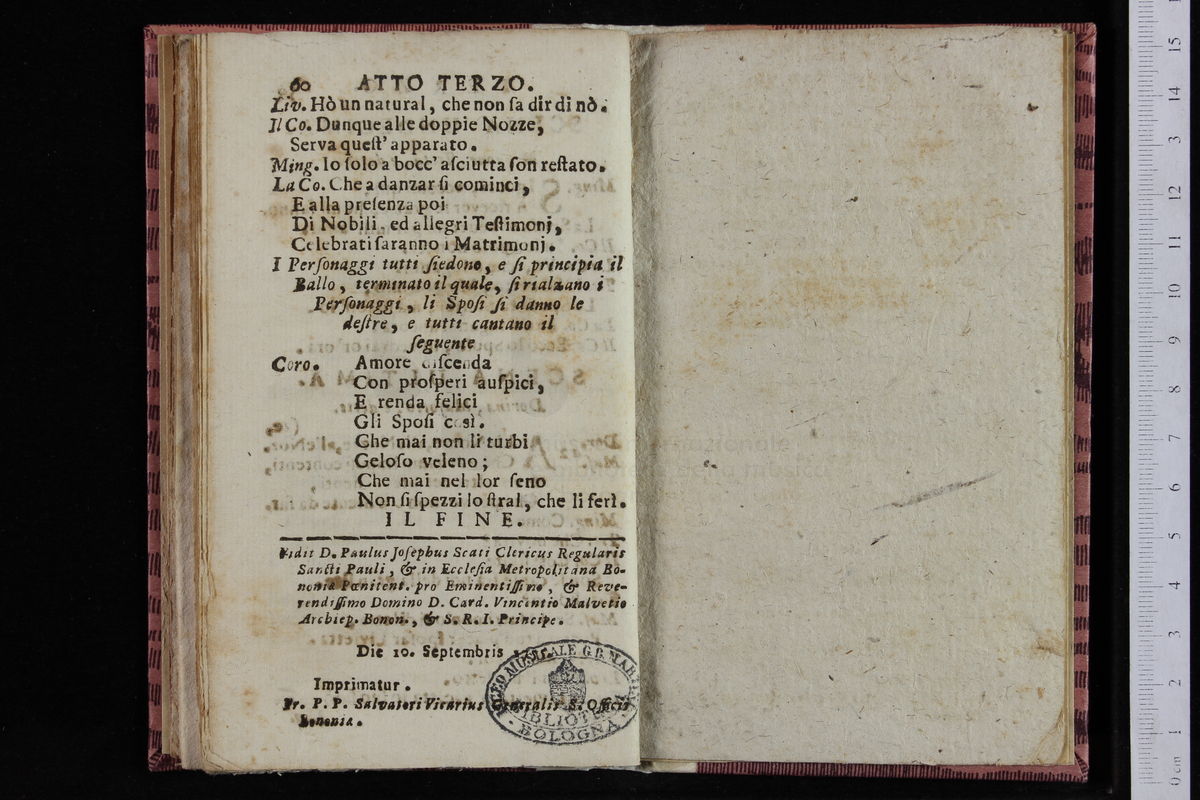 60 ATTO TERZO.
Liv. Hò un natural, che non ſa dir di nò.
Il Co. Dunque alle doppie Nozze,
Serva queſt' apparato.
Ming. Io ſolo a bocc' aſciutta ſon reſtato.
La Co. Che a danzar ſi cominci,
E alla preſenza poi
Di Nobili, ed allegri Teſtimonj,
Celebrati ſaranno i Matrimonj.
I Perſonaggi tutti ſiedono, e ſi principia il
Ballo, terminato il quale, ſi rialzano i
Perſonaggi, li Spoſi ſi danno le
deſtre, e tutti cantano il
ſeguente
Coro. Amore diſcenda
Con proſperi auſpicj,
E renda felici
Gli Spoſi così.
Che mai non li turbi
Geloſo veleno;
Che mai nel lor ſeno
Non ſi ſpezzi lo ſtral, che li ferì.
IL FINE.
Vidit D. Paulus Joſephus Scati Clericus Regularis
Sancti Pauli, & in Eccleſia Metropolitana Bo-
noniæ Pœnitent. pro Eminentiſſimo, & Reve-
rendiſſimo Domino D. Card. Vincentio Malvetio
Archiep. Bonon., & S. R. I. Principe.
Die 10. Septembris
Imprimatur.
Fr. P. P. Salvatori Vicarius Generalis S. Officii
Bononiæ.
LICEO MUSICALE G.B. MARTINI
BIBLIOTECA
BOLOGNA